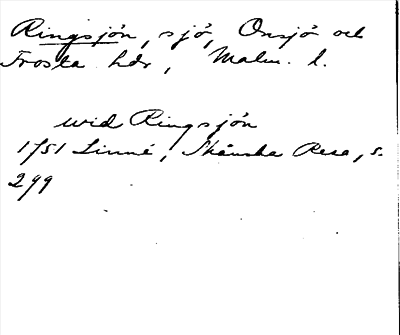 Ringsjön, sjö, Onsjö och
Frosta hdr, Malm. l.
wid Ringsjön
1751 Linné, Skånska Resa, s.
299